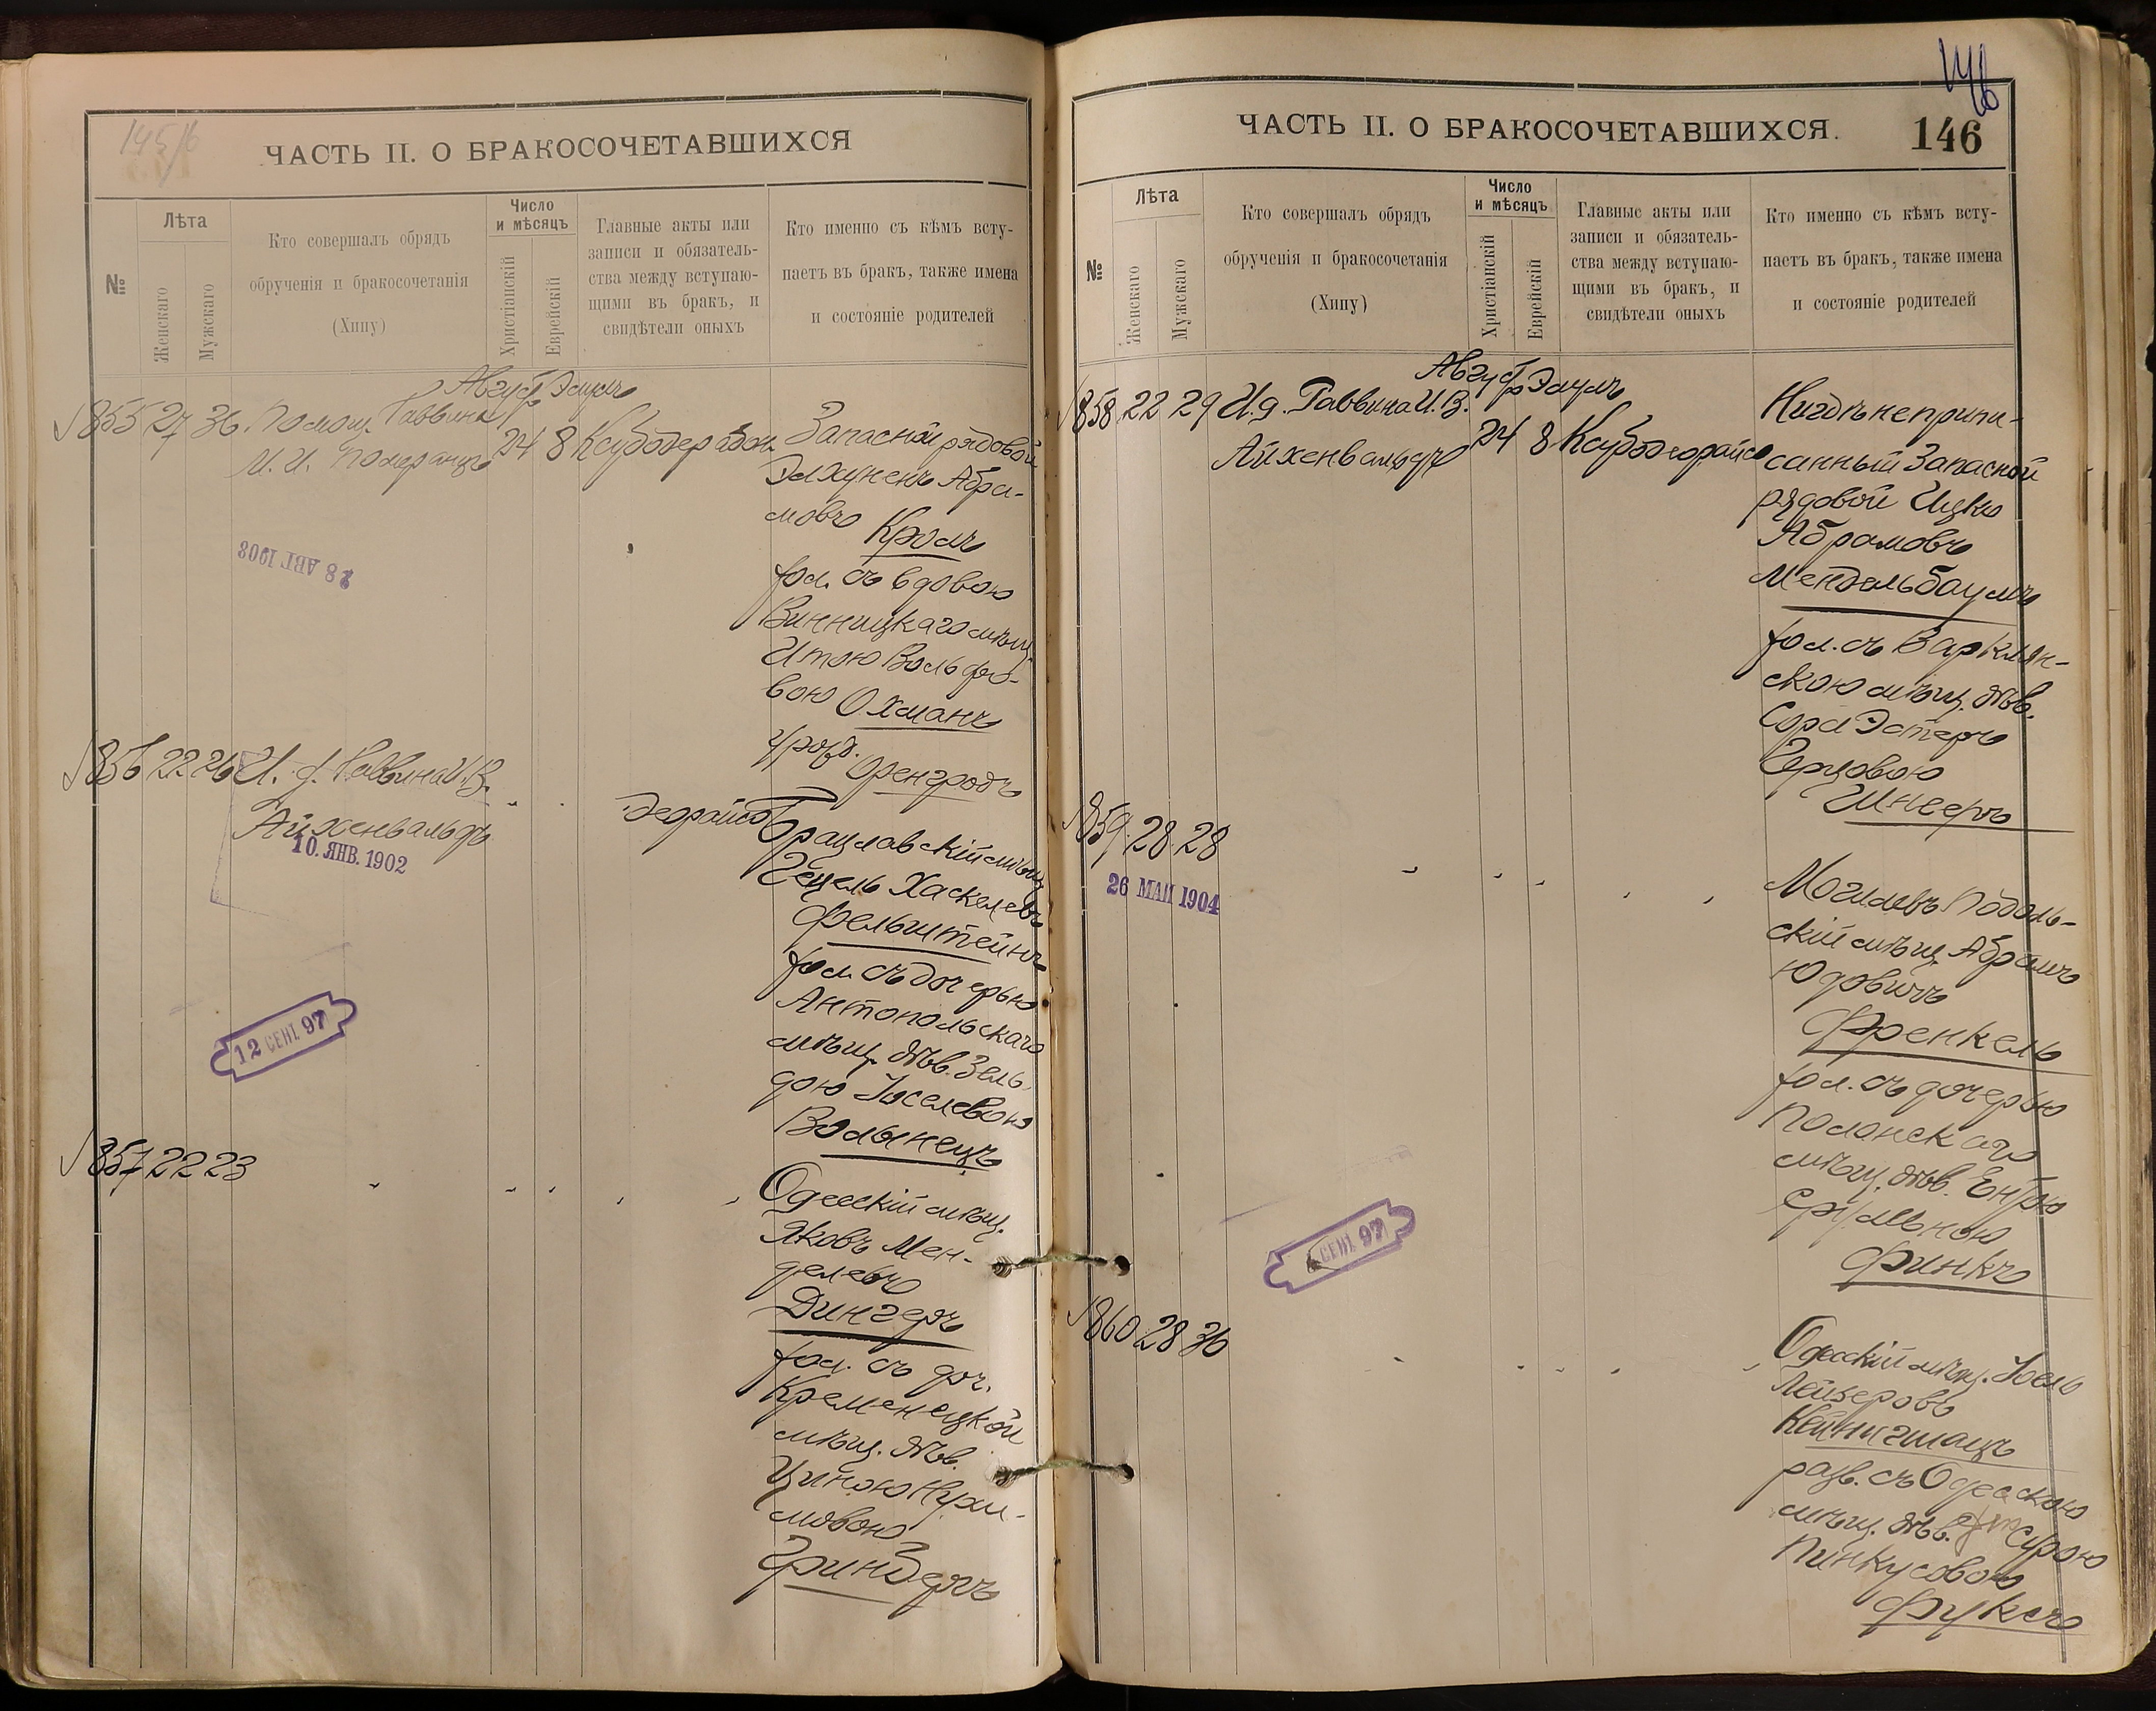 ЧАСТЬ II. О БРАКОСОЧЕТАВШИХСЯ
№
Лѣта
Женскаго
Мужскаго
Кто совершалъ обрядъ
обрученія и бракосочетанія
(Хипу)
Число
и мѣсяцъ
Христіанскій
Еврейскій
Главные акты или
записи и обязатель-
ства между вступаю-
щими въ бракъ, и
свидѣтели оныхъ
Кто именно съ кѣмъ всту-
паетъ въ бракъ, также имена
и состояніе родителей
Август Элулъ
855 27 36 Помощ. Раввина
И. И. Померанцъ
24 8
Запасной рядовой
Элхуненъ Абра-
мовъ Кролъ
хол. съ вдовою
Винницкаго мѣщ.
Итою Вольфо-
вою Охманъ
урожд.
Оренгродъ
28 АВГ 1903
856 22 26 И. д. Раввина И. В.
Айхенвальдъ
10. ЯНВ. 1902
деорайсо
Брацлавскій мѣщ.
Гецель Хаскелевъ
Фельштейнъ
хол. съ дочерью
Антопольскаго
мѣщ. дѣв. Зель-
дою Іоселевою
Волынецъ
12 СЕНТ. 97
857 22 23
Одесскій мѣщ.
Яковъ Мен-
делевъ
Дингеръ
хол. съ доч.
Кременецкой
мѣщ. дѣв.
Ципою Нухи-
мовою
Гринбергъ
146
ЧАСТЬ II. О БРАКОСОЧЕТАВШИХСЯ.
146
№
Лѣта
Женскаго
Мужскаго
Кто совершалъ обрядъ
обрученія и бракосочетанія
(Хипу)
Число
и мѣсяцъ
Христіанскій
Еврейскій
Главные акты или
записи и обязатель-
ства между вступаю-
щими въ бракъ, и
свидѣтели оныхъ
Кто именно съ кѣмъ всту-
паетъ въ бракъ, также имена
и состояніе родителей
Август Элулъ
858 22 29 И. д. Раввина И. В.
Айхенвальдъ
24 8 Ксубо деорайсо
Нигдѣ не припи-
санный Запасной
рядовой Ицко
Абрамовъ
Мендельбаумъ
хол. съ Варклян-
скою мѣщ. дѣв.
Сора Эстеръ
Герцовою
Шнееръ
859 28 28
26 МАЯ 1904
Могилевъ Подоль-
скій мѣщ. Абрамъ
Юдовичъ
Френкель
хол. съ дочерью
Полонскаго
мѣщ. дѣв.
Финкъ
СЕНТ. 97
860 28 30
Одесскій мѣщ. Іоель
Лейзеровъ
Кейнигшацъ
разв. съ Одесскою
мѣщ. дѣв. Сурою
Пинкусовою
Фуксъ